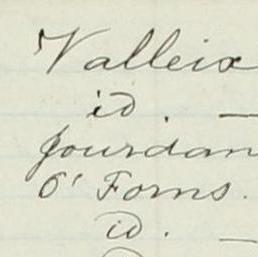 Valleix
id. —
Jourdan
O' Forns.
id. —